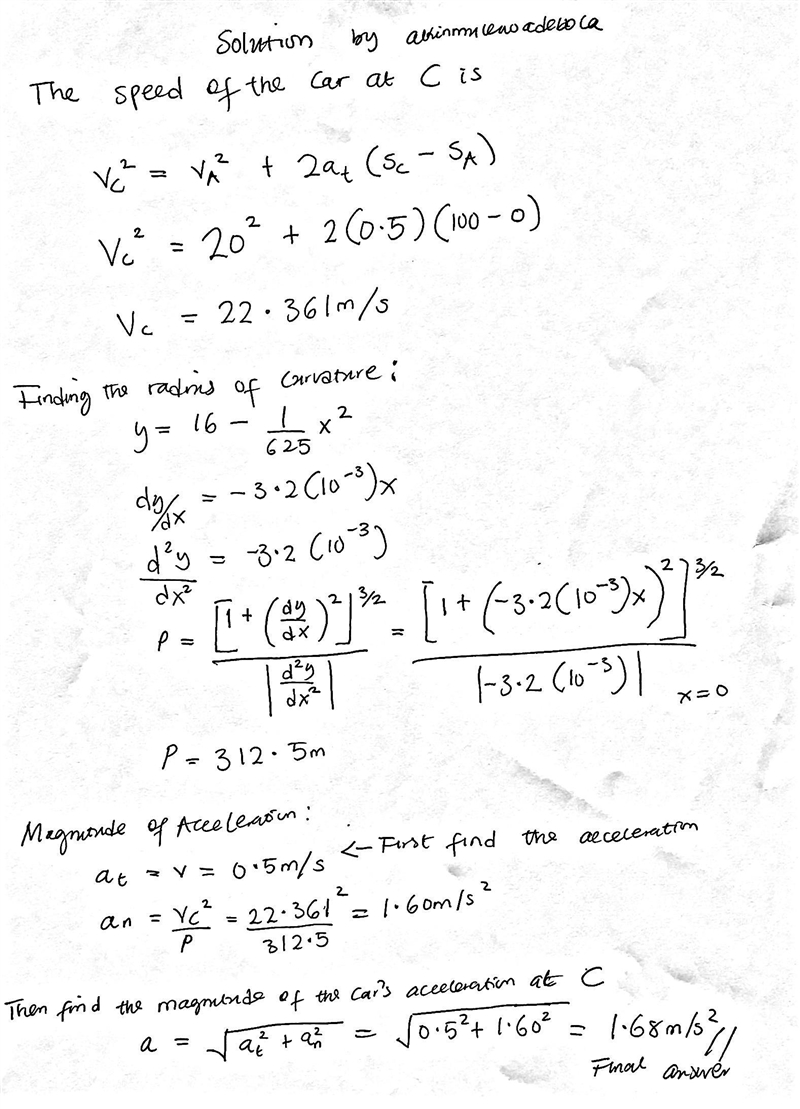 Solution by
The speed of the car at C is
Vc² = VA² + 2at (Sc - SA)
Vc² = 20² + 2(0.5)(100 - 0)
Vc = 22.361m/s
Finding the radius of curvature:
y = 16 - 1/625 x²
dy/dx = -3.2(10⁻³)x
d²y/dx² = -3.2(10⁻³)
P = [1 + (dy/dx)²]^3/2 / |d²y/dx²| = [1 + (-3.2(10⁻³)x)²]^3/2 / |-3.2(10⁻³)| x=0
P = 312.5m
Magnitude of Acceleration:
at = v = 0.5m/s ← First find the acceleration
an = Vc²/P = 22.361²/312.5 = 1.60m/s²
Then find the magnitude of the car's acceleration at C
a = √(at² + an²) = √(0.5² + 1.60²) = 1.68m/s² //
Final answer